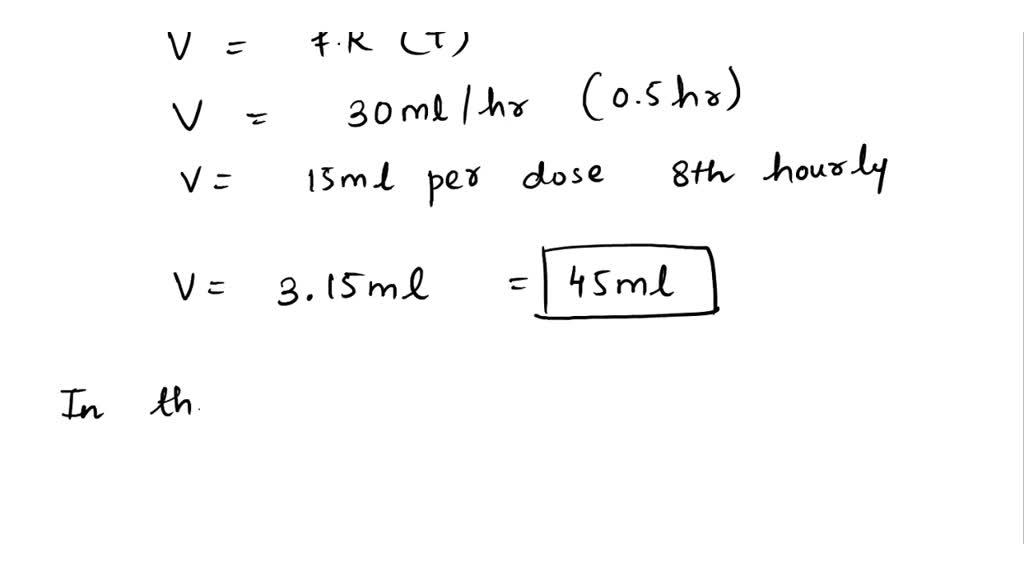 V = F.R (T)
V = 30ml/hr (0.5hr)
V = 15ml per dose 8th hourly
V = 3.15ml = 45ml
In th.